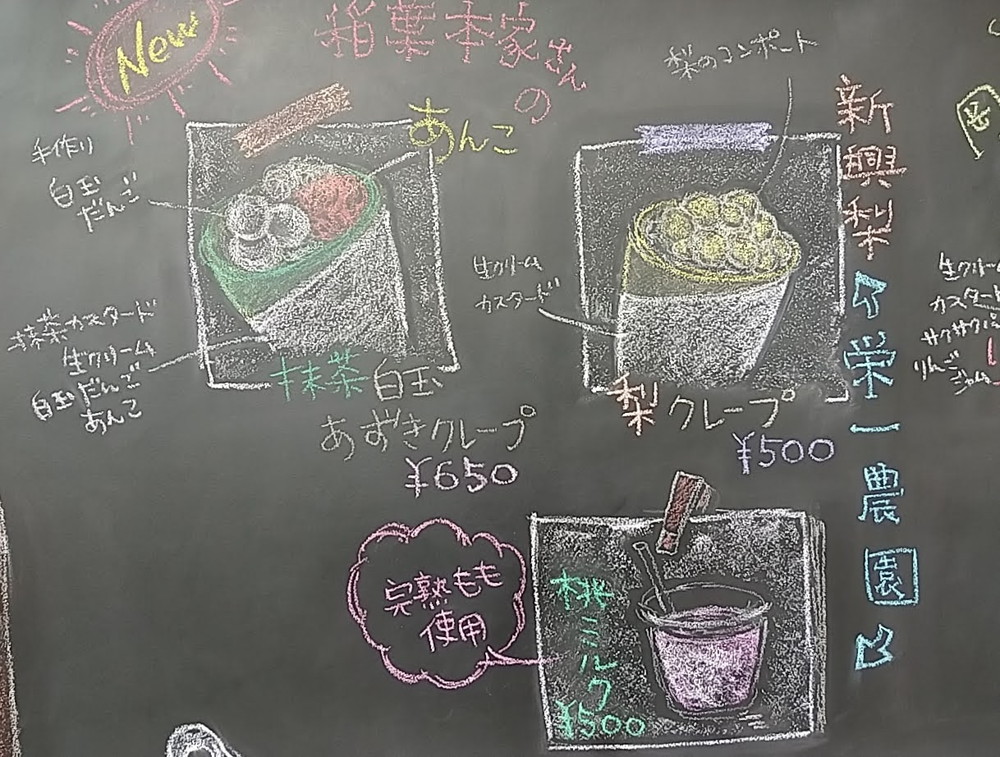 New
稲葉本家さん
の
あんこ
手作り
白玉
だんご
抹茶カスタード
生クリーム
白玉だんご
あんこ
抹茶白玉
あずきクレープ
¥650
梨のコンポート
生クリーム
カスタード
梨クレープ
¥500
新興梨
栄一農園
完熟もも
使用
桃ミルク
¥500
生クリーム
カスタード
りんご
ジャム